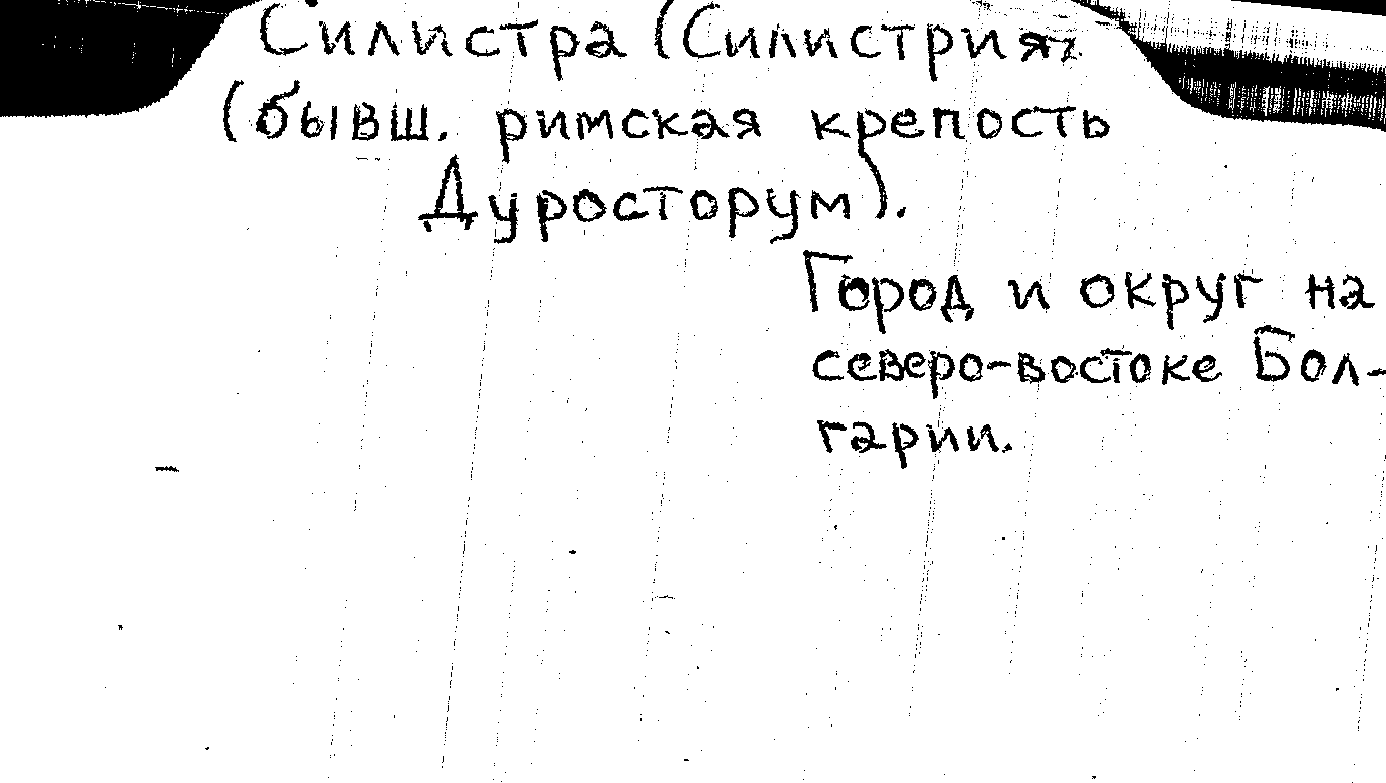 Силистра (Силистрия;
(бывш. римская крепость
Дуросторум).
Город и округ на
северо-востоке Бол-
гарии.